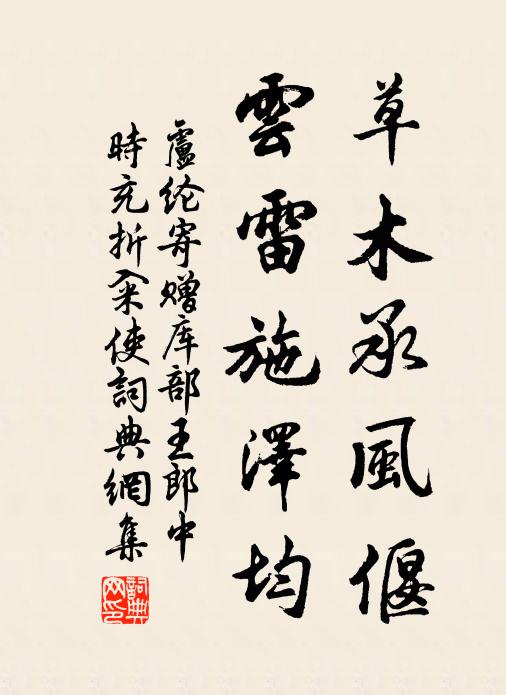 草木承風偃
雲雷施澤均
盧纶寄赠库部王郎中
時充折籴使詞典網集
詞典網印